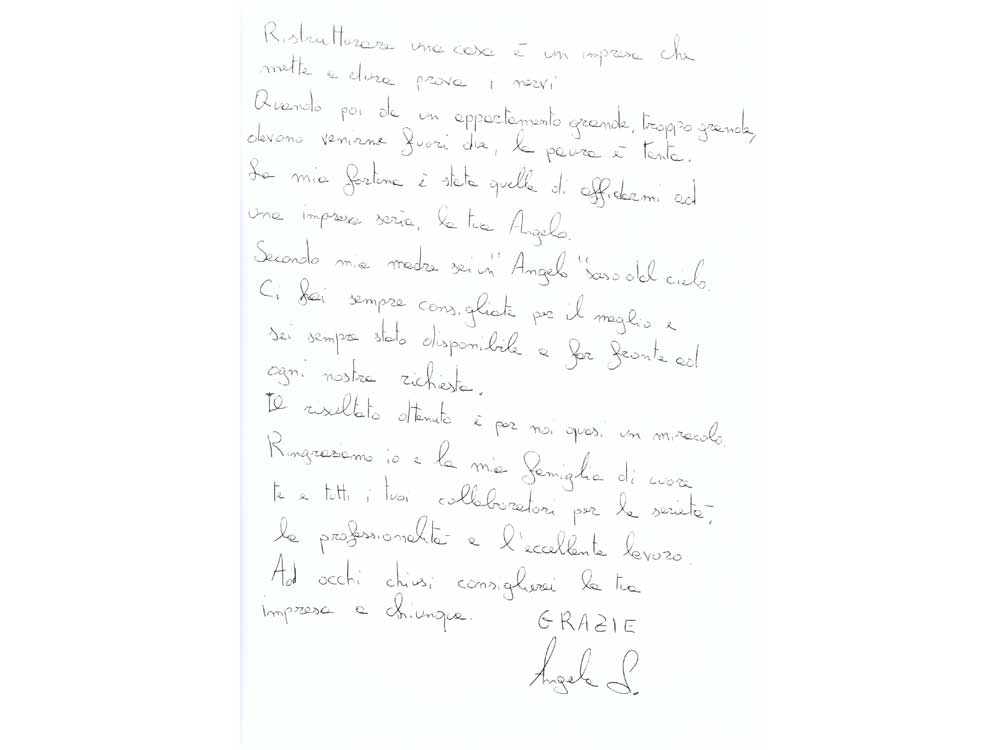 Ristrutturare una casa è un impresa che
mette a dura prova i nervi
Quando poi da un appartamento grande, troppo grande,
devono venirne fuori due, la paura è tanta.
La mia fortuna è stata quella di affidarmi ad
una impresa seria, la tua Angelo.
Secondo mia madre sei un "Angelo" sceso dal cielo.
Ci hai sempre consigliate per il meglio e
sei sempre stato disponibile a far fronte ad
ogni nostra richiesta.
Il risultato ottenuto è per noi quasi un miracolo.
Ringraziamo io e la mia famiglia di cuore
te e tutti i tuoi collaboratori per la serietà,
la professionalità e l'eccellente lavoro.
Ad occhi chiusi consiglierei la tua
impresa a chiunque. GRAZIE
Angela S.